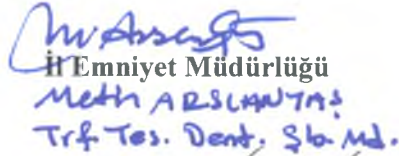 İl Emniyet Müdürlüğü
Metin ARSLANTAŞ
Trf. Tes. Dent. Şb. Md.